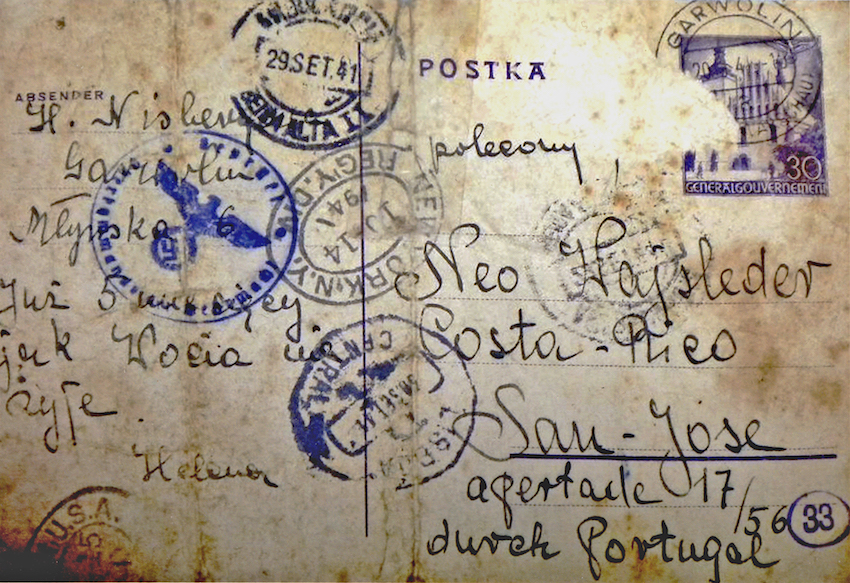 POSTKA
ABSENDER
H. Nisberg
Garwolin
Młyńska 6
Już 5 miesięcy
jak Wocia nie
żyje.
Helena
polecony
Neo Hajsleder
Costa-Rico
San-Jose
apertade 17/56
durch Portugal
33
GARWOLIN
30
GENERALGOUVERNEMENT
29.SET.41
NEW YORK, N.Y.
REG'Y. DIV.
10 14
1941
CENTRAL
LISBOA
U.S.A.